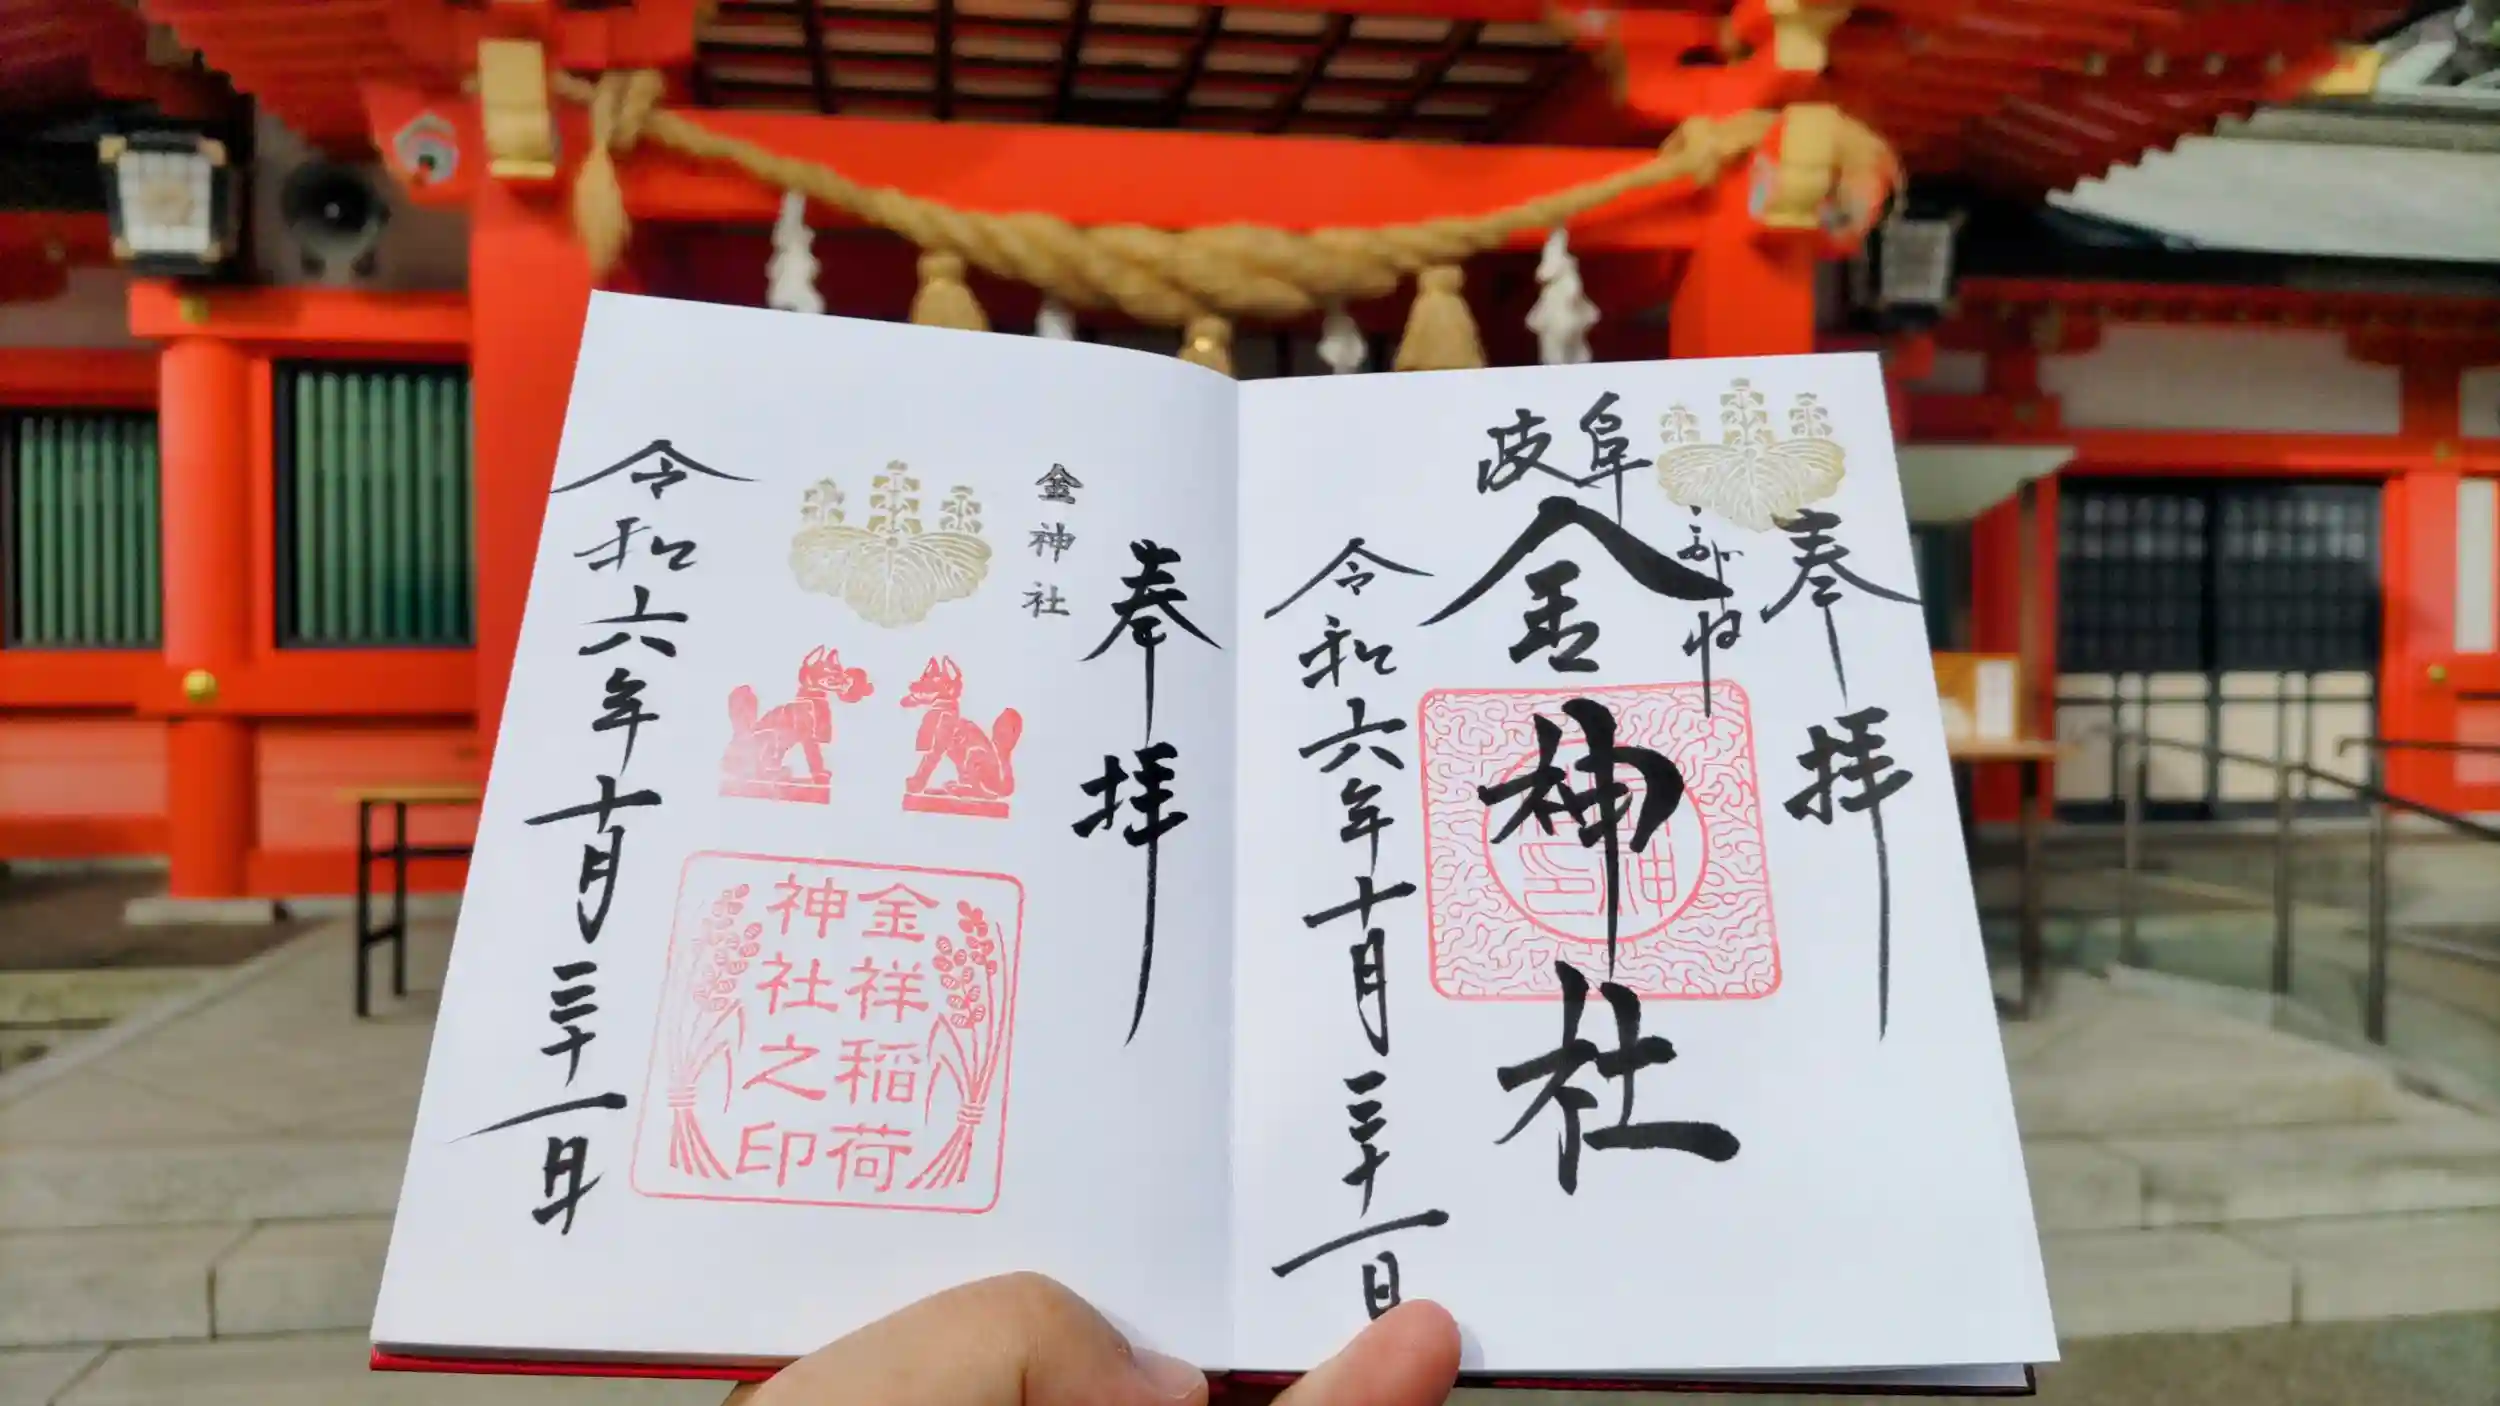 奉拝
岐阜
こがね
金神社
令和六年十月三十一日
奉拝
金神社
金祥稲荷
神社之印
令和六年十月三十一日